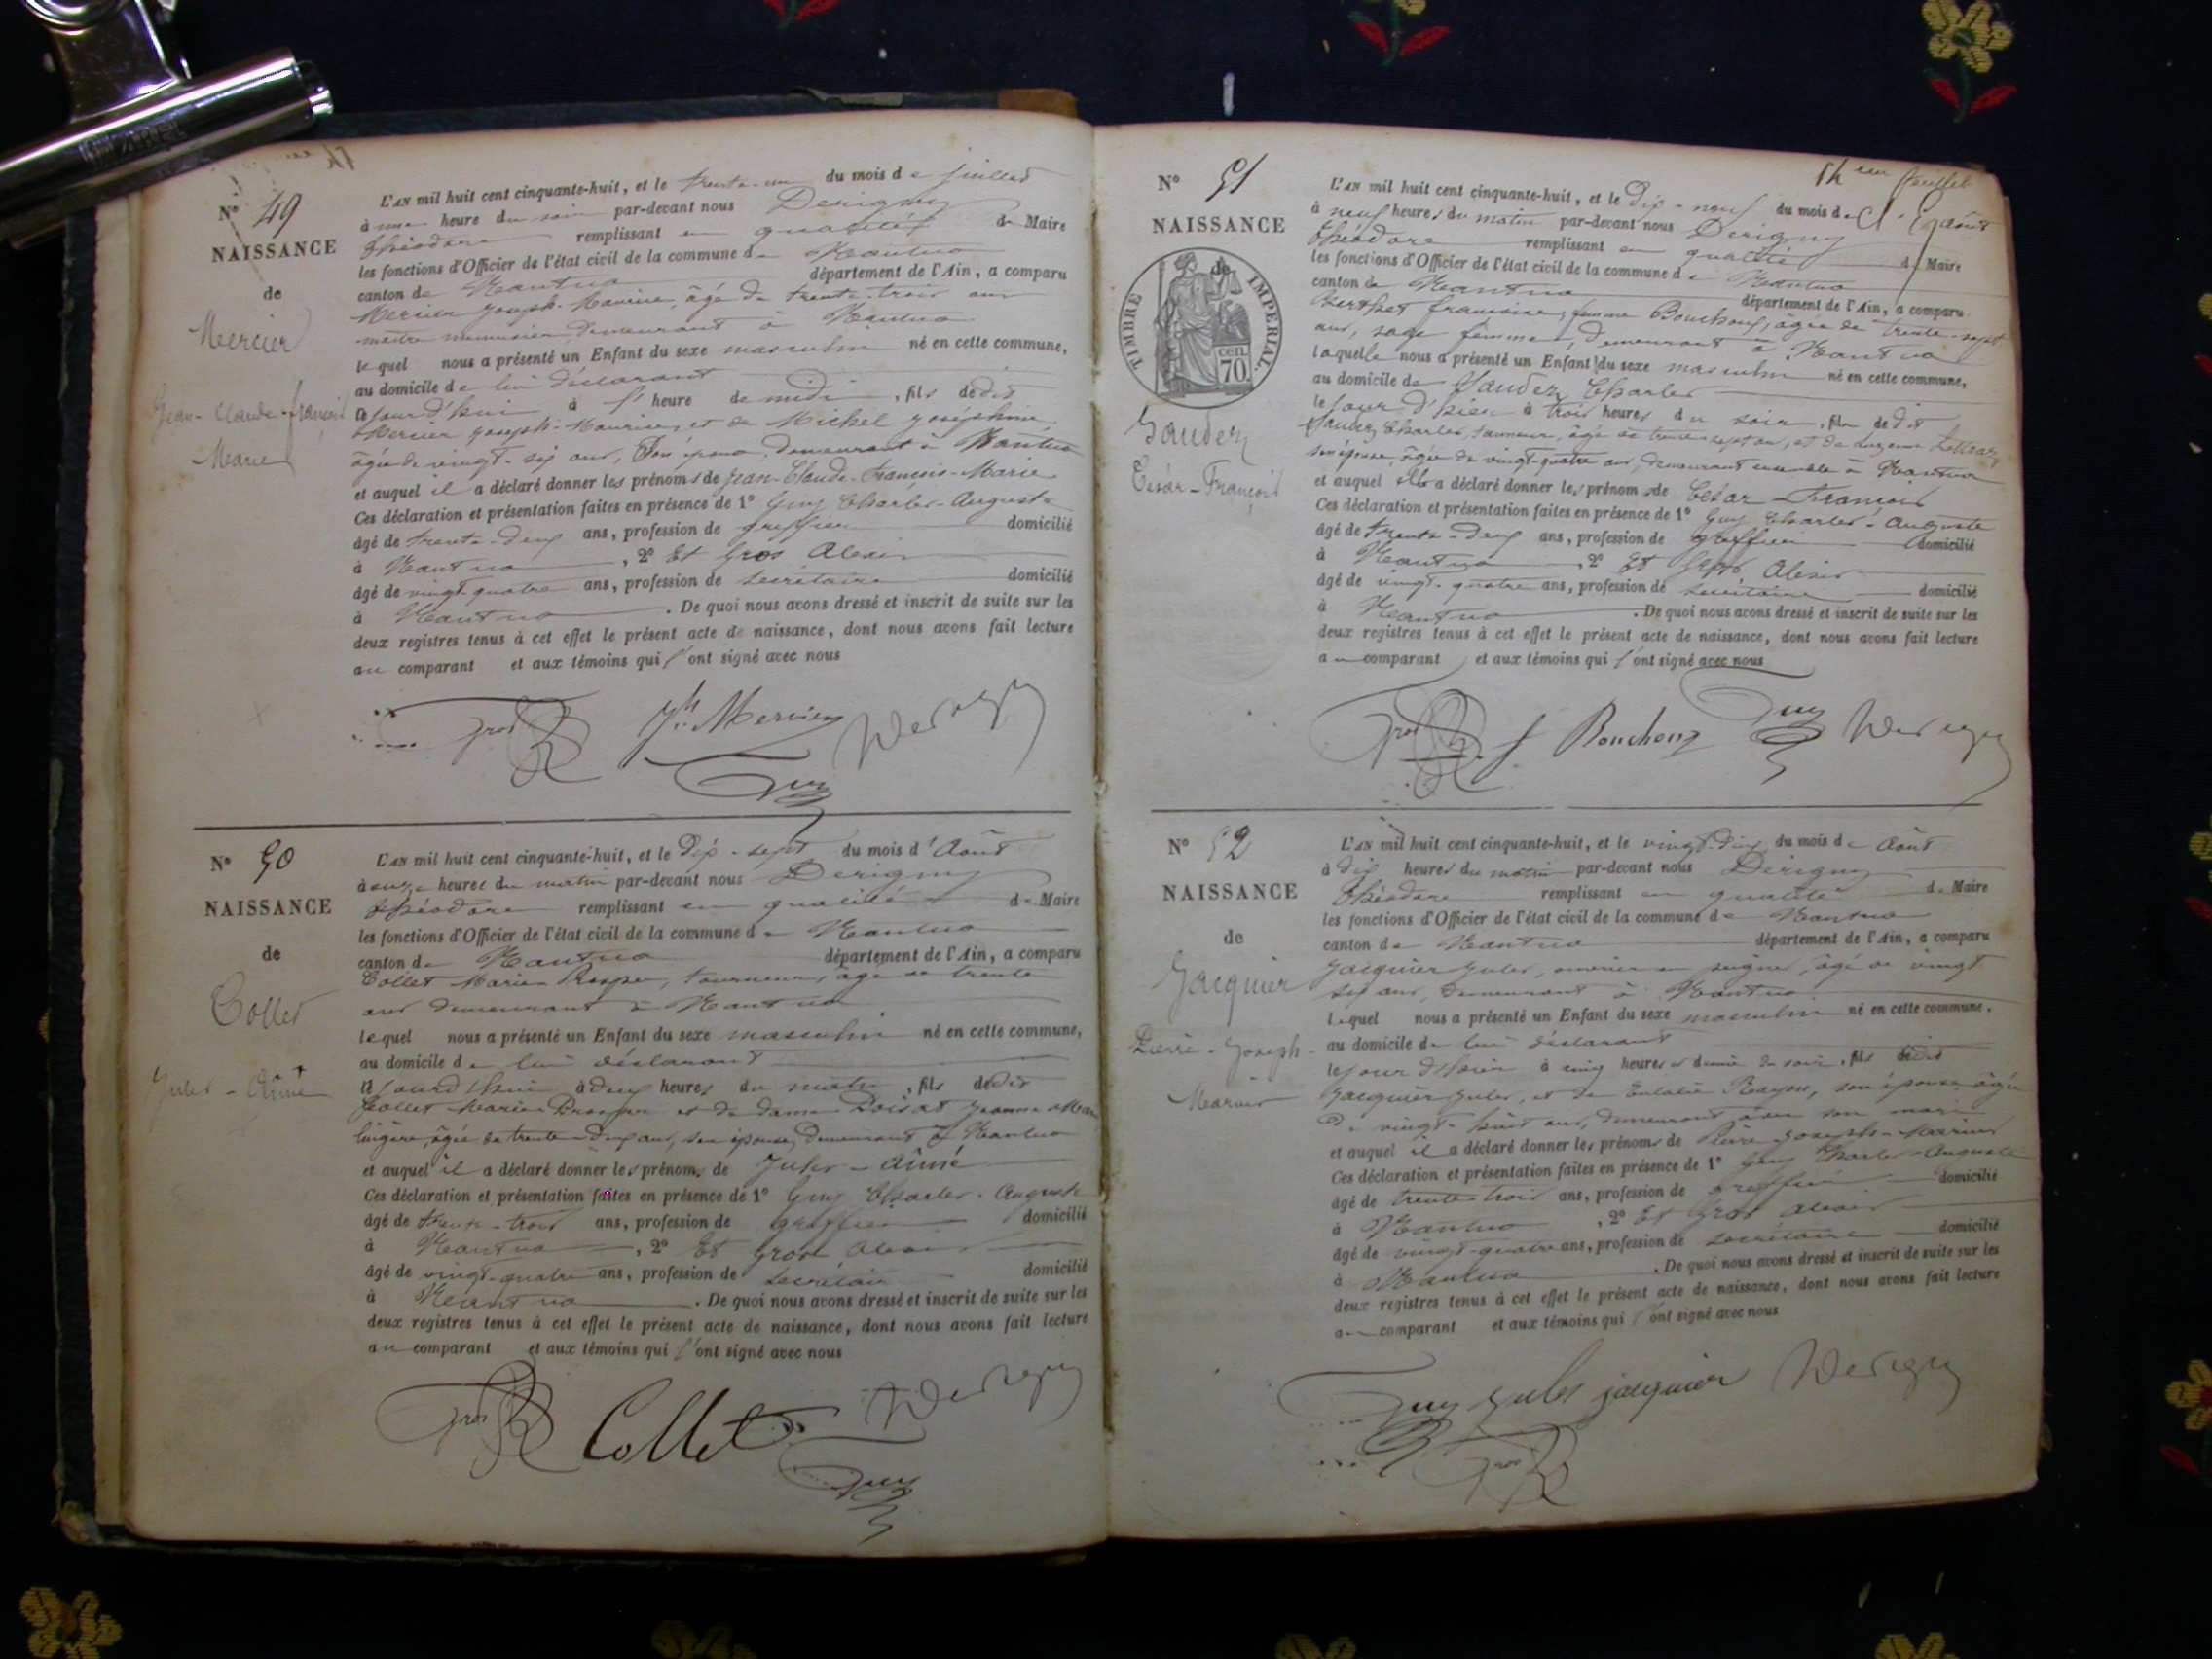 N° 49
NAISSANCE
de
Mercier
Jean-Claude-François
Marie
L'AN mil huit cent cinquante-huit, et le trente-un du mois de juillet
à une heure du soir par-devant nous Derigny
Théodore remplissant en qualité de Maire
les fonctions d'Officier de l'état civil de la commune de Nantua
canton de Nantua département de l'Ain, a comparu
Mercier Joseph-Maurice, âgé de trente-trois ans
maître menuisier demeurant à Nantua
lequel nous a présenté un Enfant du sexe masculin né en cette commune,
au domicile de lui déclarant
cejourd'hui à l'heure de midi, fils dedit
Mercier Joseph-Maurice, et de Michel Joséphine
âgée de vingt-six ans, son épouse, demeurant à Nantua
et auquel il a déclaré donner les prénoms de Jean-Claude-François-Marie
Ces déclaration et présentation faites en présence de 1° Guy Charles-Auguste
âgé de trente-deux ans, profession de greffier domicilié
à Nantua, 2° Et Gros Alexis
âgé de vingt-quatre ans, profession de secrétaire domicilié
à Nantua. De quoi nous avons dressé et inscrit de suite sur les
deux registres tenus à cet effet le présent acte de naissance, dont nous avons fait lecture
au comparant et aux témoins qui l'ont signé avec nous
Gros Jh Mercier Derigny
Guy
N° 50
NAISSANCE
de
Collet
Jules-Aimé
L'AN mil huit cent cinquante-huit, et le dix-sept du mois d'Août
à onze heures du matin par-devant nous Derigny
Théodore remplissant en qualité de Maire
les fonctions d'Officier de l'état civil de la commune de Nantua
canton de Nantua département de l'Ain, a comparu
Collet Marie Prosper, tourneur, âgé de trente
ans demeurant à Nantua
lequel nous a présenté un Enfant du sexe masculin né en cette commune,
au domicile de lui déclarant
cejourd'hui à deux heures du matin, fils dedit
Collet Marie Prosper et de dame Poisat Jeanne Marie
lingère, âgée de trente-deux ans, son épouse, demeurant à Nantua
et auquel il a déclaré donner les prénoms de Jules-Aimé
Ces déclaration et présentation faites en présence de 1° Guy Charles-Auguste
âgé de trente-trois ans, profession de greffier domicilié
à Nantua, 2° Et Gros Alexis
âgé de vingt-quatre ans, profession de secrétaire domicilié
à Nantua. De quoi nous avons dressé et inscrit de suite sur les
deux registres tenus à cet effet le présent acte de naissance, dont nous avons fait lecture
au comparant et aux témoins qui l'ont signé avec nous
Gros Collet Derigny
Guy
14eme feuillet
N° 51
NAISSANCE
de
TIMBRE IMPERIAL
70 cen.
Gaudez
César-François
L'AN mil huit cent cinquante-huit, et le dix-neuf du mois d'août
à neuf heures du matin par-devant nous Derigny
Théodore remplissant en qualité de Maire
les fonctions d'Officier de l'état civil de la commune de Nantua
canton de Nantua département de l'Ain, a comparu
Berthet françoise, femme Bouchoux, âgée de trente-sept
ans, sage femme, demeurant à Nantua
laquelle nous a présenté un Enfant du sexe masculin né en cette commune,
au domicile de Gaudez Charles
le jour d'hier à trois heures du soir, fils dedit
Gaudez Charles, tanneur, âgé de trente-sept ans, et de
son épouse, âgée de vingt-quatre ans, demeurant ensemble à Nantua
et auquel Elle a déclaré donner les prénoms de César-François
Ces déclaration et présentation faites en présence de 1° Guy Charles-Auguste
âgé de trente-deux ans, profession de greffier domicilié
à Nantua, 2° Et Gros Alexis
âgé de vingt-quatre ans, profession de secrétaire domicilié
à Nantua. De quoi nous avons dressé et inscrit de suite sur les
deux registres tenus à cet effet le présent acte de naissance, dont nous avons fait lecture
au comparant et aux témoins qui l'ont signé avec nous
Gros f. Bouchoux Guy Derigny
N° 52
NAISSANCE
de
Jacquier
Pierre-Joseph-
Marius
L'AN mil huit cent cinquante-huit, et le vingt-deux du mois de Août
à dix heures du matin par-devant nous Derigny
Théodore remplissant en qualité de Maire
les fonctions d'Officier de l'état civil de la commune de Nantua
canton de Nantua département de l'Ain, a comparu
Jacquier Jules, ouvrier en peignes, âgé de vingt
six ans, demeurant à Nantua
lequel nous a présenté un Enfant du sexe masculin né en cette commune,
au domicile de lui déclarant
le jour d'hier à cinq heures et demie du soir, fils dedit
Jacquier Jules, et de Eulalie, son épouse âgée
de vingt-huit ans, demeurant avec son mari
et auquel il a déclaré donner les prénoms de Pierre-Joseph-Marius
Ces déclaration et présentation faites en présence de 1° Guy Charles-Auguste
âgé de trente-trois ans, profession de greffier domicilié
à Nantua, 2° Et Gros Alexis
âgé de vingt-quatre ans, profession de secrétaire domicilié
à Nantua. De quoi nous avons dressé et inscrit de suite sur les
deux registres tenus à cet effet le présent acte de naissance, dont nous avons fait lecture
au comparant et aux témoins qui l'ont signé avec nous
Guy Jules jacquier Derigny
Gros